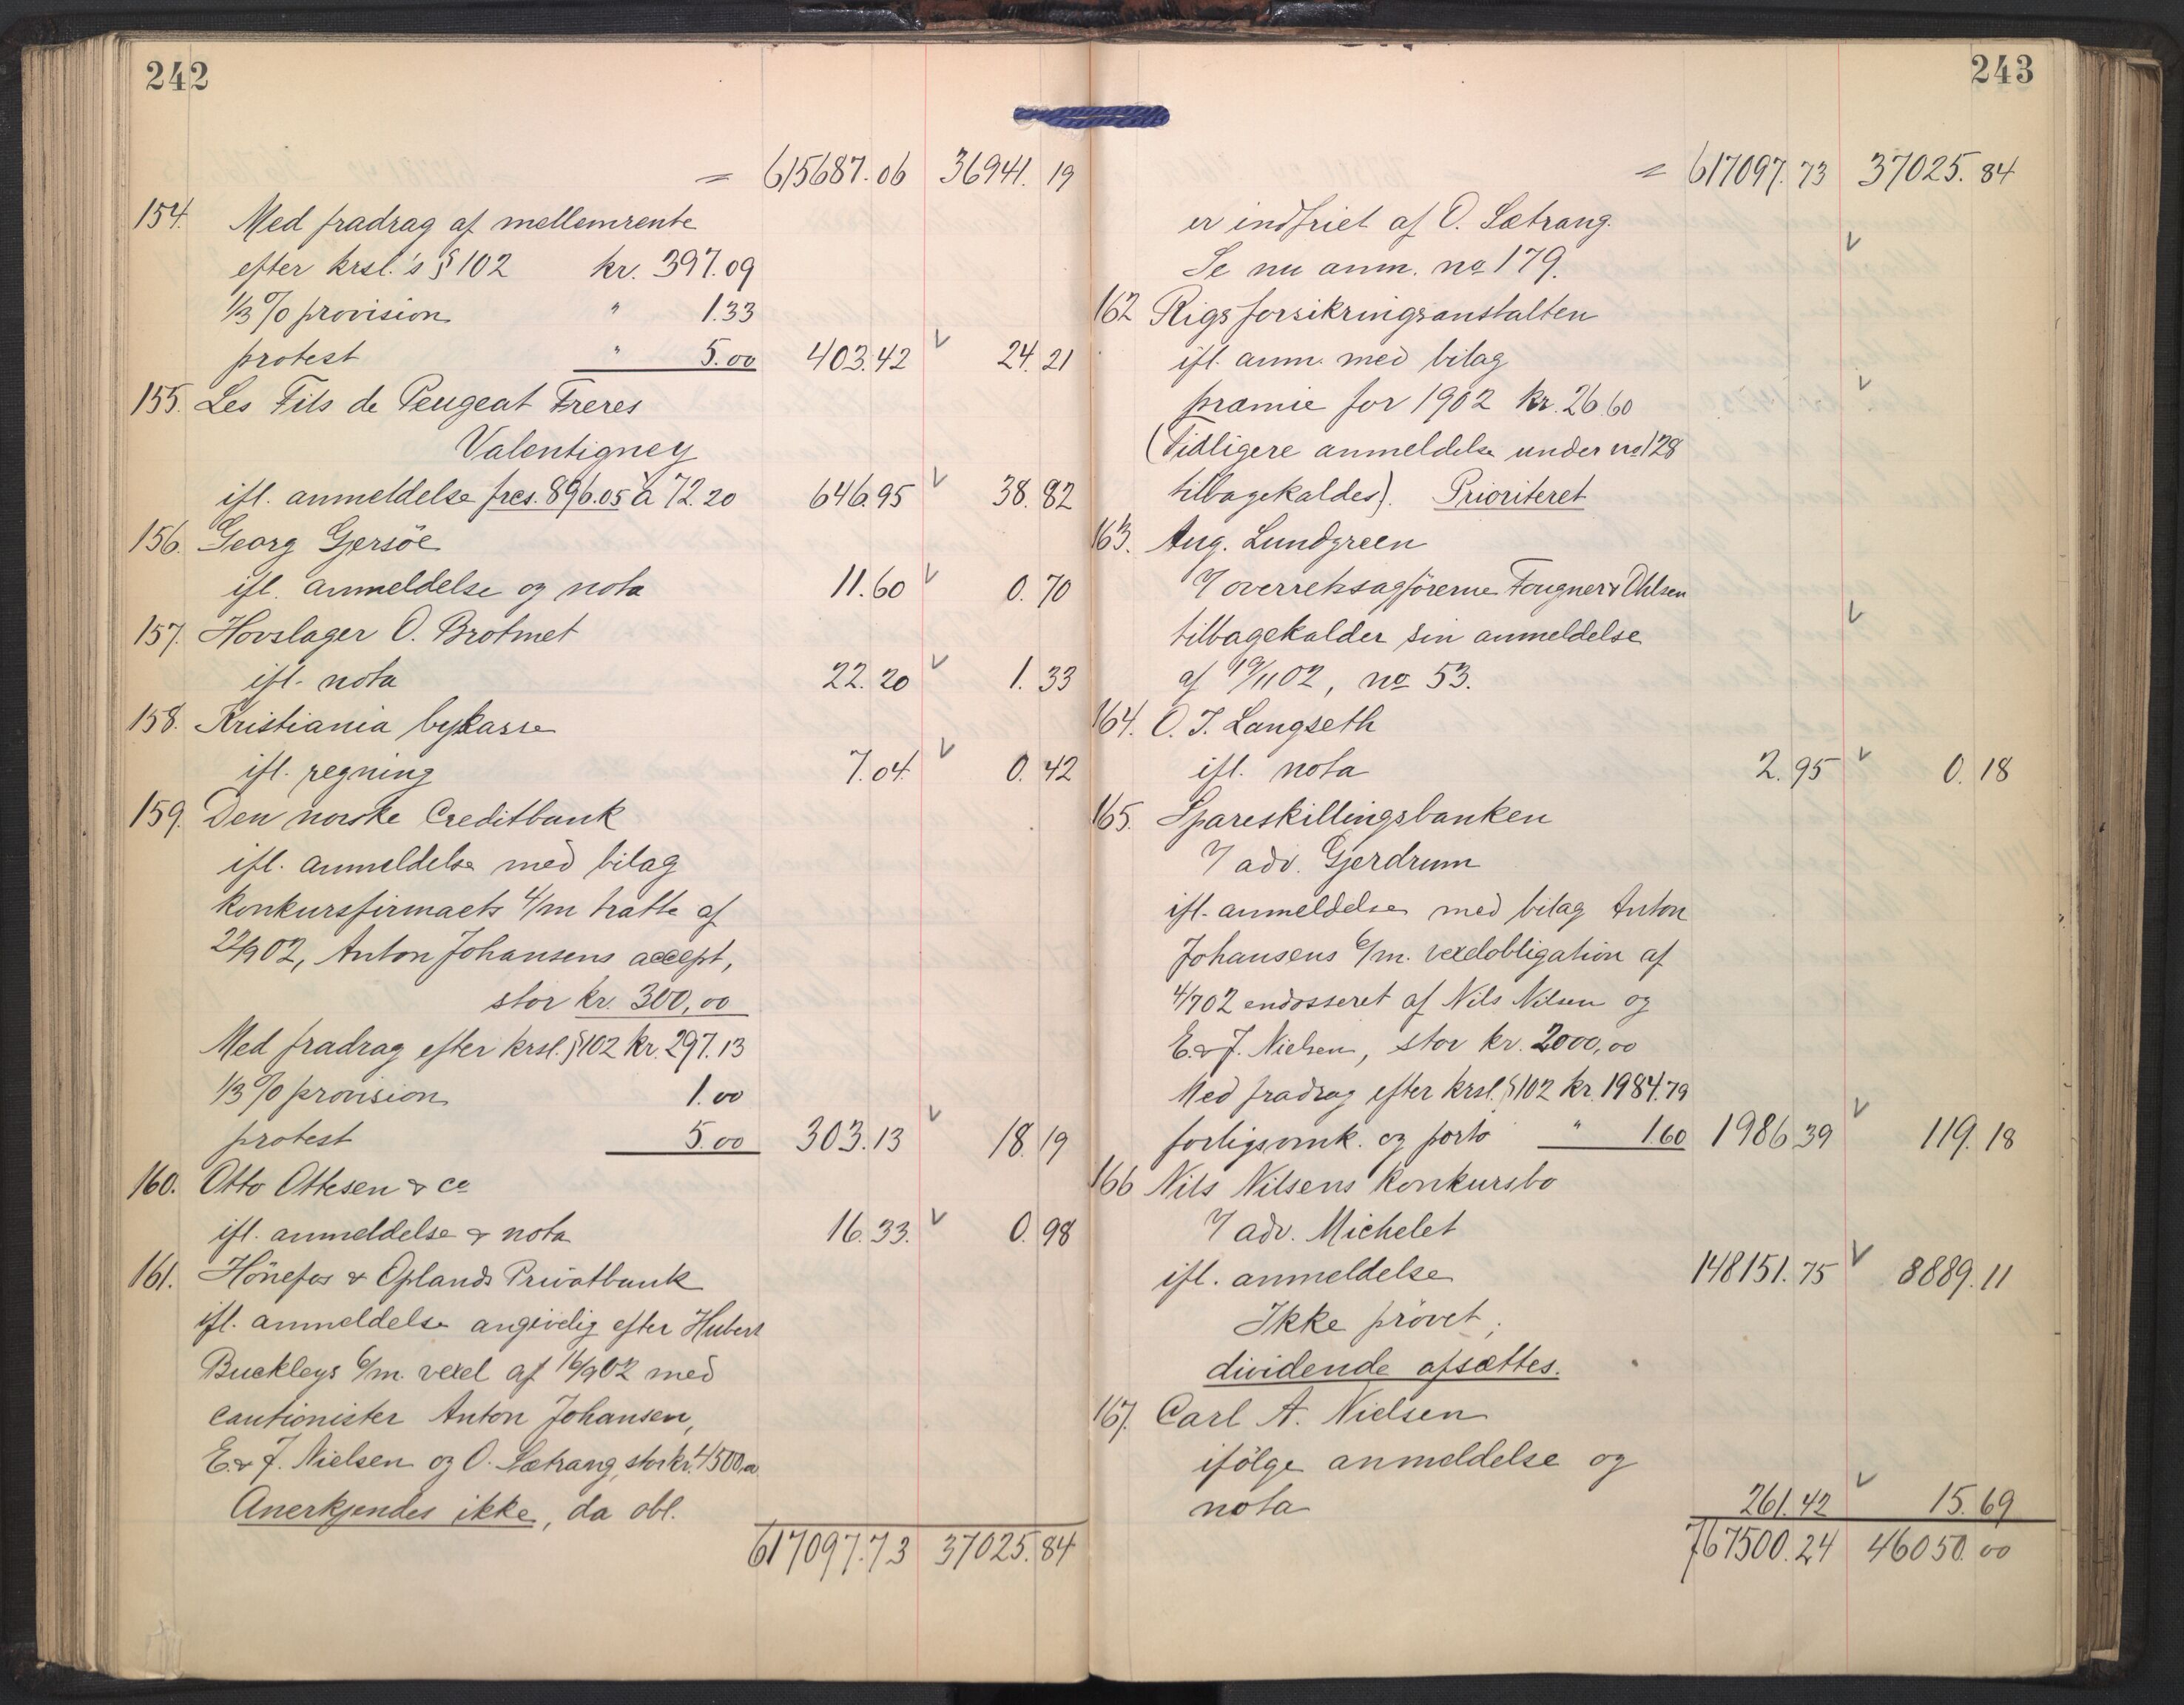 242
= 615687.06 36941.19
154. Med fradrag af mellemrente
efter krsl.'s § 102 kr. 397.09
1/3 % provision " 1.33
protest " 5.00 403.42 V 24.21
155. Les Fils de Peugeat Freres
Valentigney
ifl. anmeldelse frcs. 896.05 à 72.20 646.95 V 38.82
156. Georg Gjersöe
ifl. anmeldelse og nota 11.60 V 0.70
157. Hovslager O. Brotmet
ifl. nota 22.20 V 1.33
158. Kristiania bykasse
ifl. regning 7.04 V 0.42
159. Den norske Creditbank
ifl. anmeldelse med bilag
konkursfirmaets 4/m tratte af
22/9 02, Anton Johansens accept,
stor kr. 300,00
Med fradrag efter krsl. § 102 kr. 297.13
1/3 % provision 1.00
protest 5.00 303.13 V 18.19
160. Otto Ottesen & co
ifl. anmeldelse & nota 16.33. V 0.98
161. Hönefos & Oplands Privatbank
ifl. anmeldelse angivelig efter Hubert
Buckleys 6/m. vexel af 16/9 02 med
cautionister Anton Johansen,
E. & J. Nielsen og O. Sætrang, stor kr. 4500,00
Anerkjendes ikke, da obl.
617097.73 37025.84
243
= 617097.73 37025.84
er indfriet af O. Sætrang.
Se nu anm. no 179. V
162 Rigsforsikringsanstalten
ifl. anm. med bilag
præmie for 1902 kr. 26.60 V
(Tidligere anmeldelse under no 128
tilbagekaldes). Prioriteret
163. Aug. Lundgreen
v/ overretssagförerne Fougner & Ohlsen
tilbagekalder sin anmeldelse V
af 19/11 02, no 53.
164. O. J. Langseth
ifl. nota 2.95 V 0.18
165. Spareskillingsbanken
v/ adv. Gjerdrum
ifl. anmeldelse med bilag Anton
Johansens 6/m. vexelobligation af
4/7 02 endosseret af Nils Nilsen og
E. & J. Nielsen, stor kr. 2000,00
Med fradrag efter krsl. § 102 kr. 1984.79
forligsomk. og porto " 1.60 1986.39 V 119.18
166 Nils Nilsens konkursbo
v/ adv. Michelet
ifl. anmeldelse 148151.75 V 8889.11
Ikke prövet;
dividende afsættes.
167. Carl A. Nielsen
ifölge anmeldelse og
nota 261.42 V 15.69
767500.24 46050.00